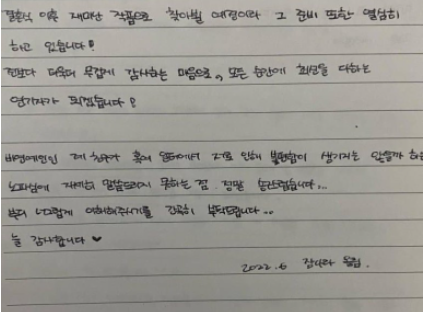 결혼식 이후 재미난 작품으로 찾아뵐 예정이라 그 준비 또한 열심히
하고 있습니다!
전보다 더욱더 무겁게 감사하는 마음으로, 모든 순간에 최선을 다하는
연기자가 되겠습니다!
비연예인인 제 친구가 혹여 일터에서 저로 인해 불편함이 생기지는 않을까 하는
노파심에 자세히 말씀드리지 못하는 점 정말 송구합니다...
부디 너그럽게 이해해주시기를 간곡히 부탁드립니다..
늘 감사합니다 ♥
2022.6 장나라 올림.